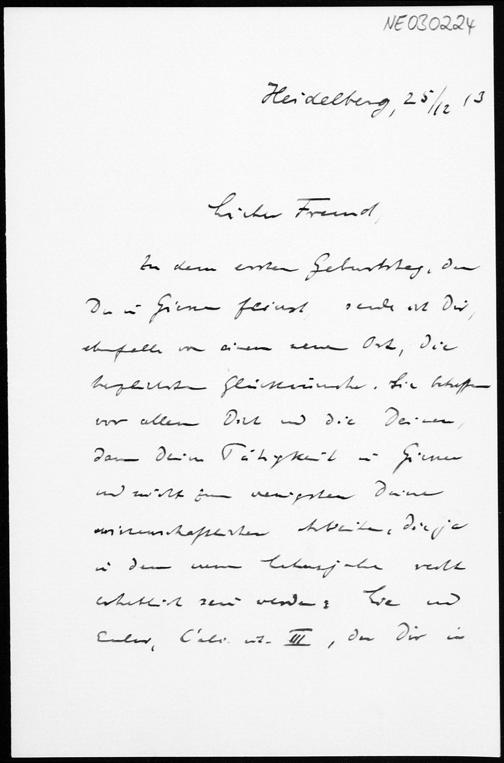 NE030224
Heidelberg, 25/12 13
Lieber Freund,
Zu dem ersten Geburtstag, den
Du in Giessen feierst, sende ich Dir,
ebenfalls von einem neuen Ort, die
herzlichsten Glückwünsche. Sie betreffen
vor allem Dich und die Deinen,
dann Deine Tätigkeit in Giessen
und nicht zum wenigsten Deine
wissenschaftlichen Arbeiten, die ja
in dem neuen Lebensjahr recht
erheblich sein werden: Lie und
Euler, Calc. int. III, den Dir in